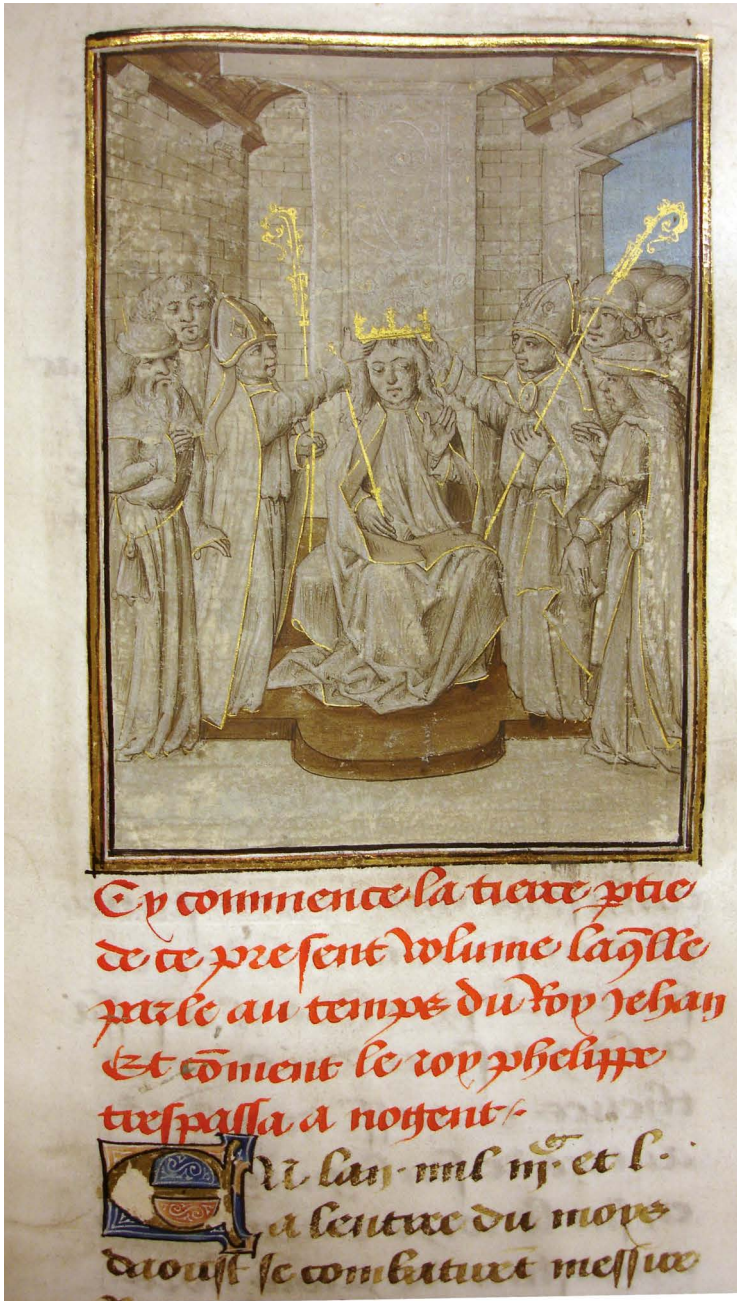 Cy commence la tierce ptie
de ce present volume laqlle
parle au temps du Roy Jehan
Et cōment le roy phelippe
trespassa a nogent
En lan mil iijᶜ et l.
a lentree du moys
daoust se combatirēt messire